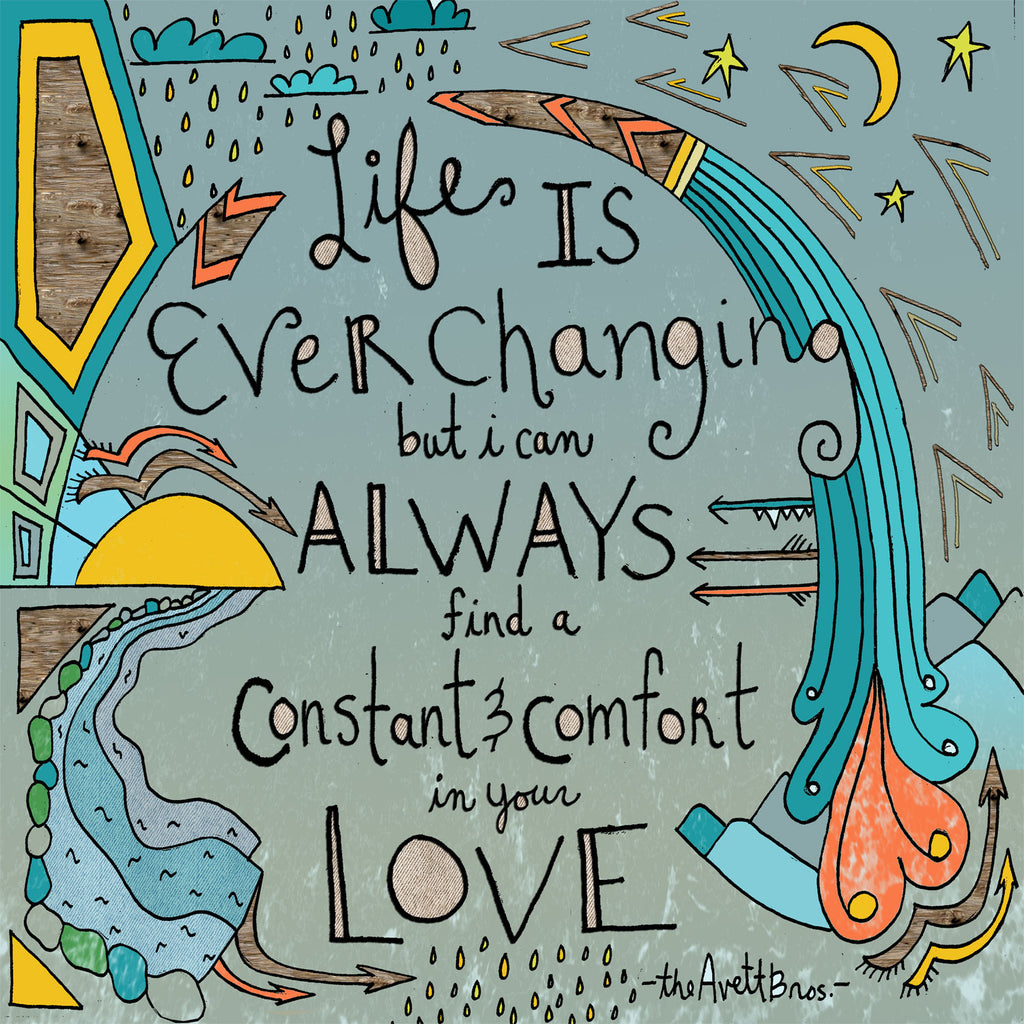 Life IS
EVeR Changing
but i can
ALWAYS
find a
Constant & Comfort
in your
LOVE
-the Avett Bros.-